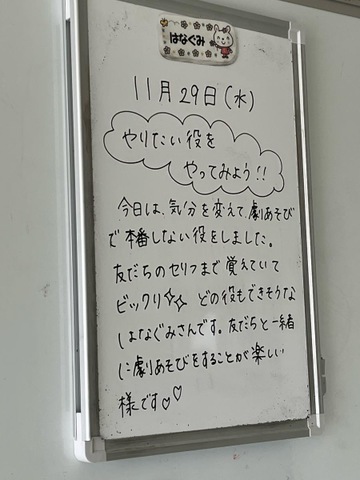 はなぐみ
11月29日(水)
やりたい役を
やってみよう!!
今日は、気分を変えて、劇あそび
で本番しない役をしました。
友だちのセリフまで覚えていて
ビックリ✨ どの役もできそうな
はなぐみさんです。友だちと一緒
に劇あそびをすることが楽しい
様です♡♡